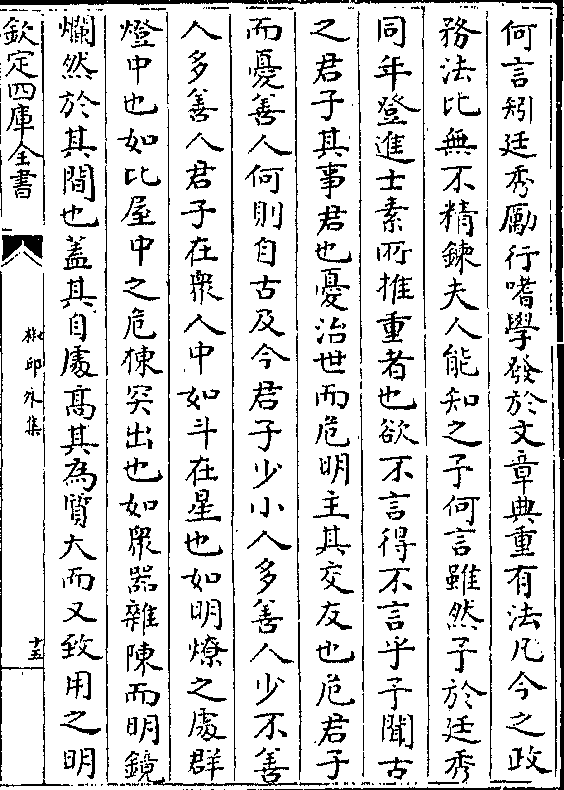 何言矧廷秀勵行嗜學發於文章典重有法凡今之政
務法比無不精鍊夫人能知之予何言雖然子於廷秀
同年登進士素所推重者也欲不言得不言乎予聞古
之君子其事君也憂治世而危明主其交友也危君子
而憂善人何則自古及今君子少小人多善人少不善
人多善人君子在衆人中如斗在星也如明燎之處群
燈中也如比屋中之危棟突出也如衆器雜陳而明鏡
爛然於其間也蓋其自處髙其為質大而又致用之明
欽定四庫全書
椒邱外集
十五